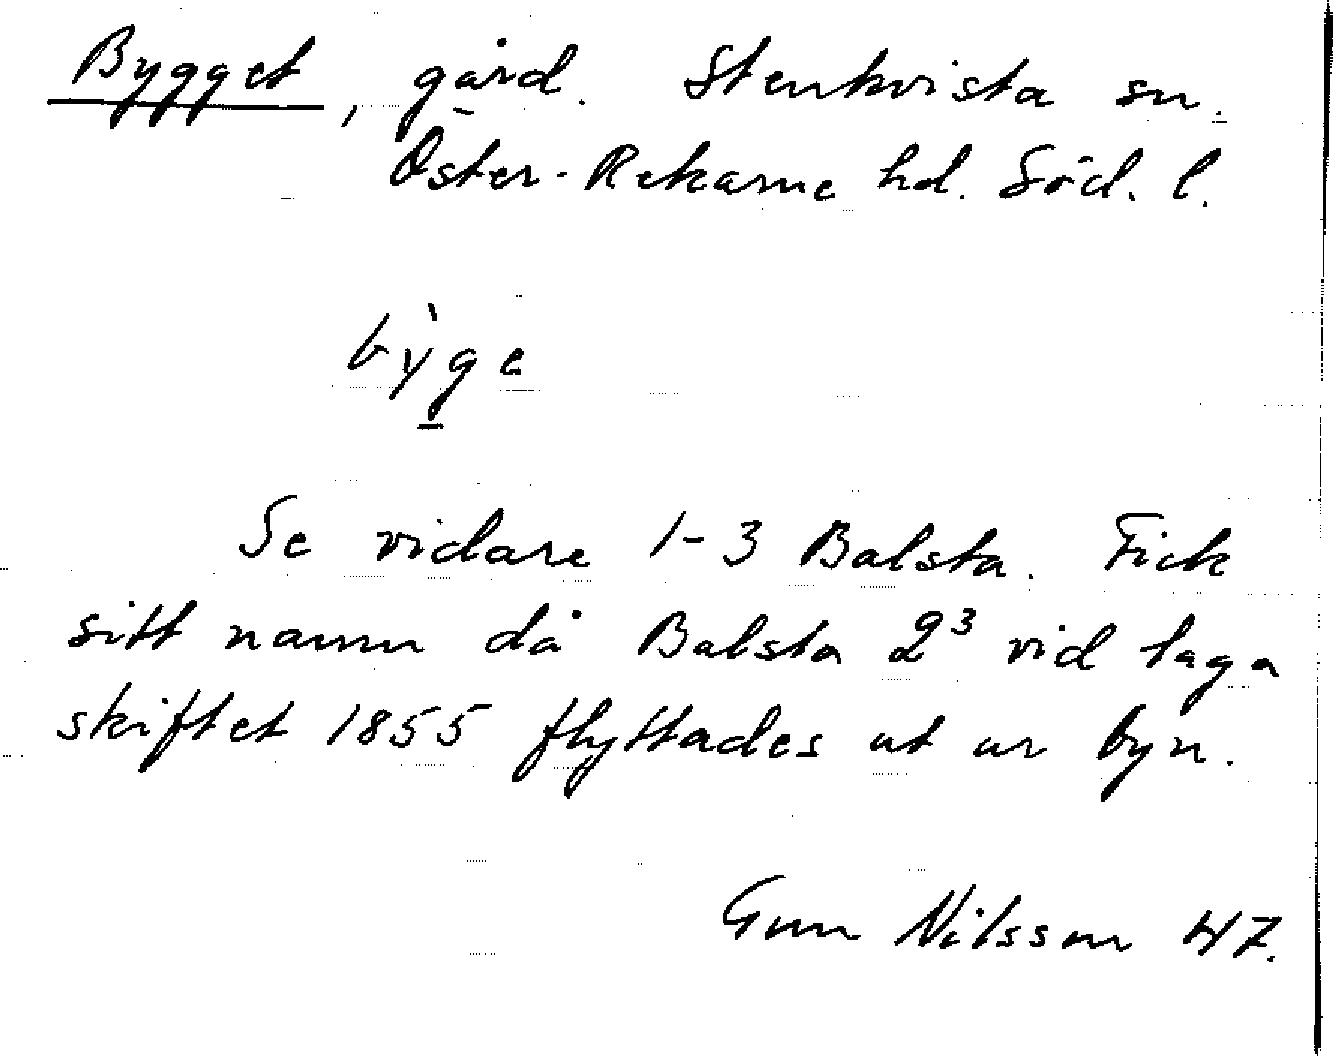 Bygget, gård. Stenkvista sn.
Öster-Rekarne hd. Söd. l.
bỳge
Se vidare 1-3 Balsta. Fick
sitt namn då Balsta 2³ vid laga
skiftet 1855 flyttades ut ur byn.
Gun Nilsson 47.